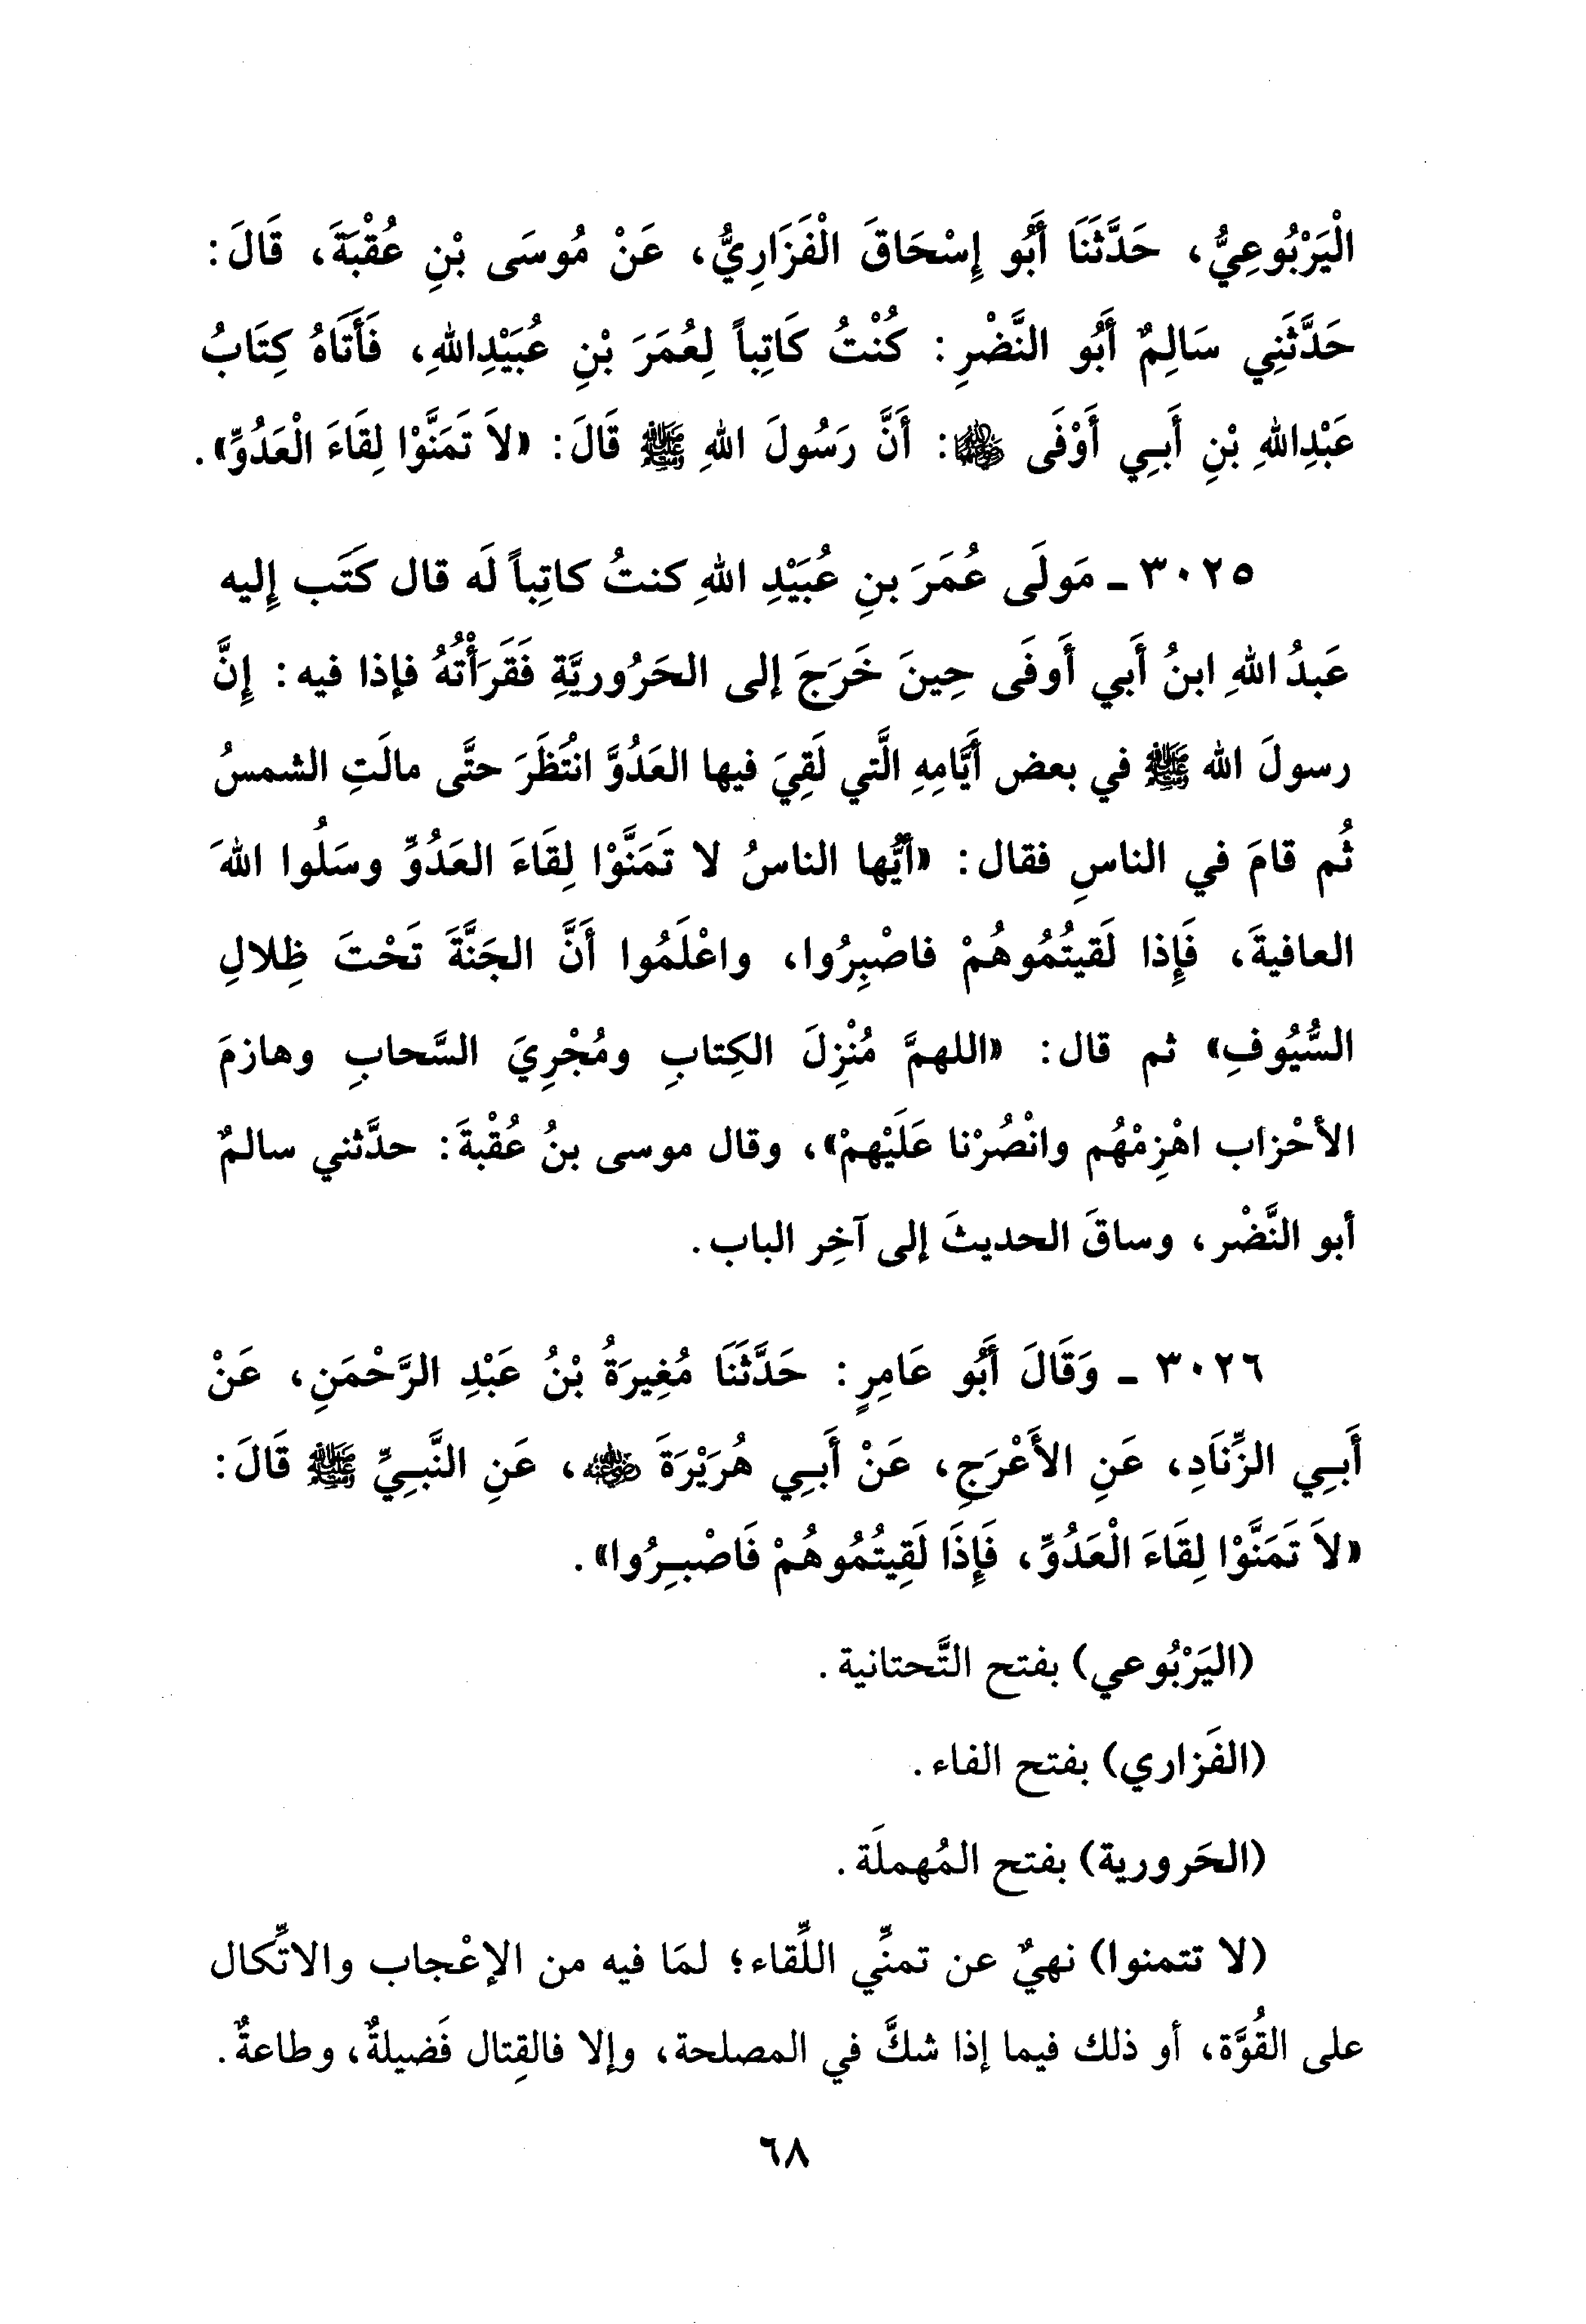 الْيَرْبُوعِيُّ، حَدَّثَنَا أَبُو إِسْحَاقَ الْفَزَارِيُّ، عَنْ مُوسَى بْنِ عُقْبَةَ، قَالَ:
حَدَّثَنِي سَالِمٌ أَبُو النَّضْرِ: كُنْتُ كَاتِباً لِعُمَرَ بْنِ عُبَيْدِاللهِ، فَأَتَاهُ كِتَابُ
عَبْدِاللهِ بْنِ أَبِي أَوْفَى رضي الله عنهما: أَنَّ رَسُولَ اللهِ ﷺ قَالَ: «لاَ تَمَنَّوْا لِقَاءَ الْعَدُوِّ».
٣٠٢٥ - مَولَى عُمَرَ بنِ عُبَيْدِ اللهِ كنتُ كاتِباً لَه قال كَتَب إِليه
عَبدُ اللهِ ابنُ أَبي أَوفَى حِينَ خَرَجَ إلى الحَرُوريَّةِ فَقَرَأْتُهُ فإذا فيه: إِنَّ
رسولَ الله ﷺ في بعض أَيَّامِهِ الَّتي لَقِيَ فيها العَدُوَّ انْتَظَرَ حتَّى مالَتِ الشمسُ
ثُم قامَ في الناسِ فقال: «أَيُّها الناسُ لا تَمَنَّوْا لِقَاءَ العَدُوِّ وسَلُوا اللهَ
العافيةَ، فَإِذا لَقيتُمُوهُمْ فاصْبِرُوا، واعْلَمُوا أَنَّ الجَنَّةَ تَحْتَ ظِلالِ
السُّيُوفِ» ثم قال: «اللهمَّ مُنْزِلَ الكِتابِ ومُجْرِيَ السَّحابِ وهازمَ
الأحْزاب اهْزِمْهُم وانْصُرْنا عَلَيْهمْ»، وقال موسى بنُ عُقْبةَ: حدَّثني سالمٌ
أبو النَّضْر، وساقَ الحديثَ إلى آخِر الباب.
٣٠٢٦ - وَقَالَ أَبُو عَامِرٍ: حَدَّثَنَا مُغِيرَةُ بْنُ عَبْدِ الرَّحْمَنِ، عَنْ
أَبِي الزِّنَادِ، عَنِ الأَعْرَجِ، عَنْ أَبِي هُرَيْرَةَ رضي الله عنه، عَنِ النَّبِيِّ ﷺ قَالَ:
«لاَ تَمَنَّوْا لِقَاءَ الْعَدُوِّ، فَإِذَا لَقِيتُمُوهُمْ فَاصْبِرُوا».
(اليَرْبُوعي) بفتح التَّحتانية.
(الفَزاري) بفتح الفاء.
(الحَرورية) بفتح المُهملَة.
(لا تتمنوا) نهيٌ عن تمنِّي اللِّقاء؛ لمَا فيه من الإعْجاب والاتِّكال
على القُوَّة، أو ذلك فيما إذا شكَّ في المصلحة، وإلا فالقِتال فَضيلةٌ، وطاعةٌ.
٦٨